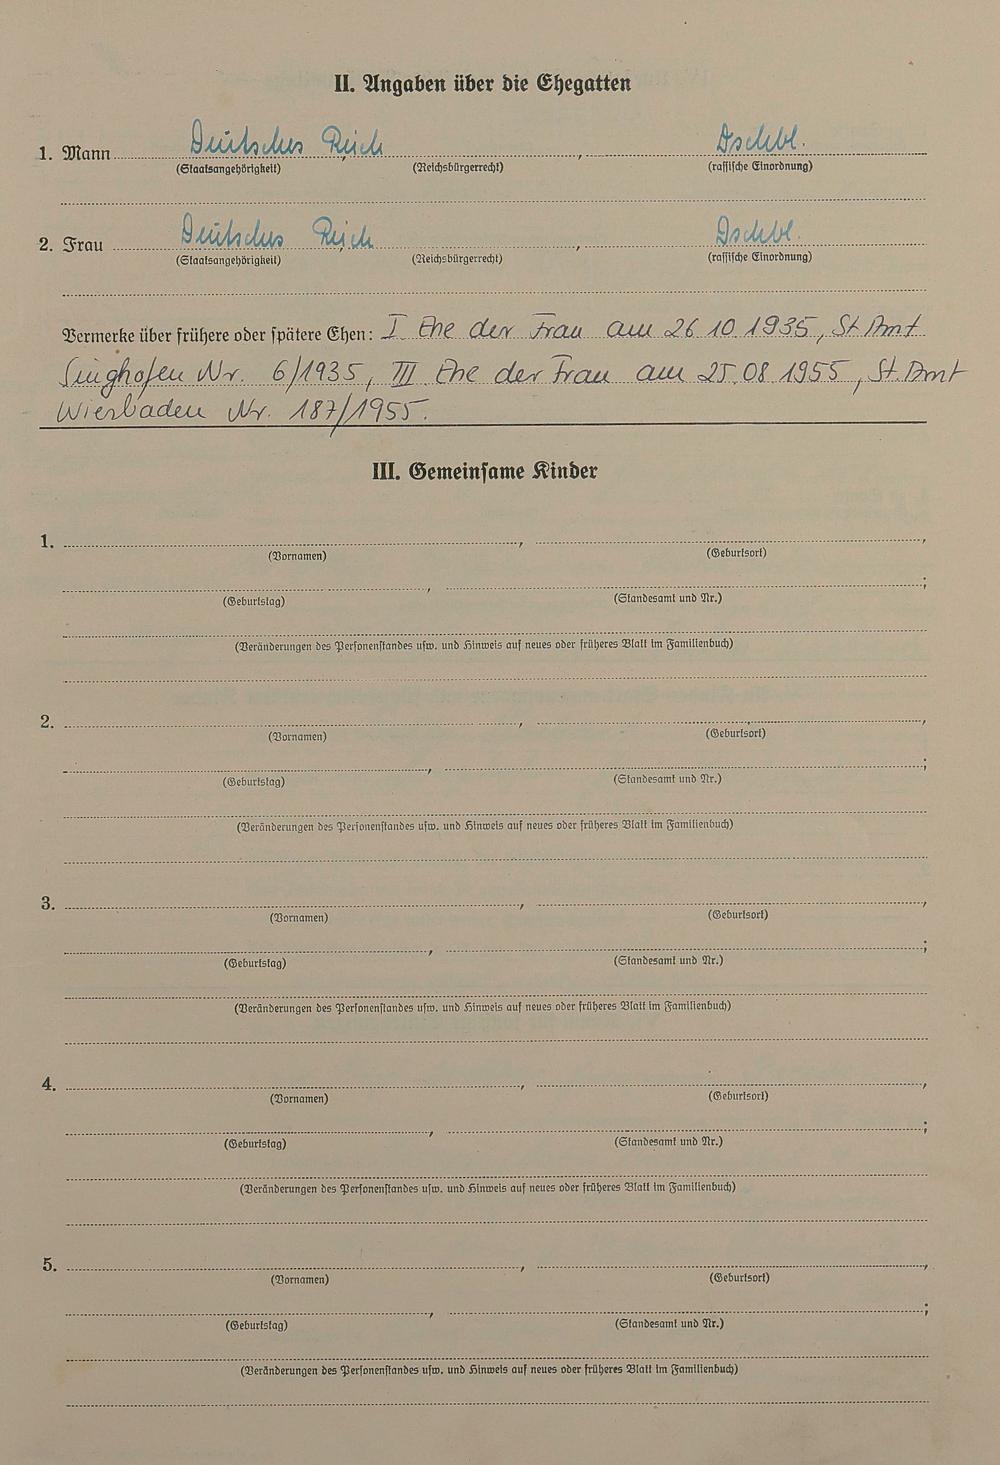 II. Angaben über die Ehegatten
1. Mann Deutsches Reich , Dschbl.
(Staatsangehörigkeit) (Reichsbürgerrecht) (rassische Einordnung)
2. Frau Deutsches Reich , Dschbl.
(Staatsangehörigkeit) (Reichsbürgerrecht) (rassische Einordnung)
Vermerke über frühere oder spätere Ehen: I Ehe der Frau am 26.10.1935, St. Amt
Singhofen Nr. 6/1935, III. Ehe der Frau am 25.08.1955, St. Amt
Wiesbaden Nr. 187/1955.
III. Gemeinsame Kinder
1. , ,
(Vornamen) (Geburtsort)
, ;
(Geburtstag) (Standesamt und Nr.)
(Veränderungen des Personenstandes usw. und Hinweis auf neues oder früheres Blatt im Familienbuch)
2. , ,
(Vornamen) (Geburtsort)
, ;
(Geburtstag) (Standesamt und Nr.)
(Veränderungen des Personenstandes usw. und Hinweis auf neues oder früheres Blatt im Familienbuch)
3. , ,
(Vornamen) (Geburtsort)
, ;
(Geburtstag) (Standesamt und Nr.)
(Veränderungen des Personenstandes usw. und Hinweis auf neues oder früheres Blatt im Familienbuch)
4. , ,
(Vornamen) (Geburtsort)
, ;
(Geburtstag) (Standesamt und Nr.)
(Veränderungen des Personenstandes usw. und Hinweis auf neues oder früheres Blatt im Familienbuch)
5. , ,
(Vornamen) (Geburtsort)
, ;
(Geburtstag) (Standesamt und Nr.)
(Veränderungen des Personenstandes usw. und Hinweis auf neues oder früheres Blatt im Familienbuch)